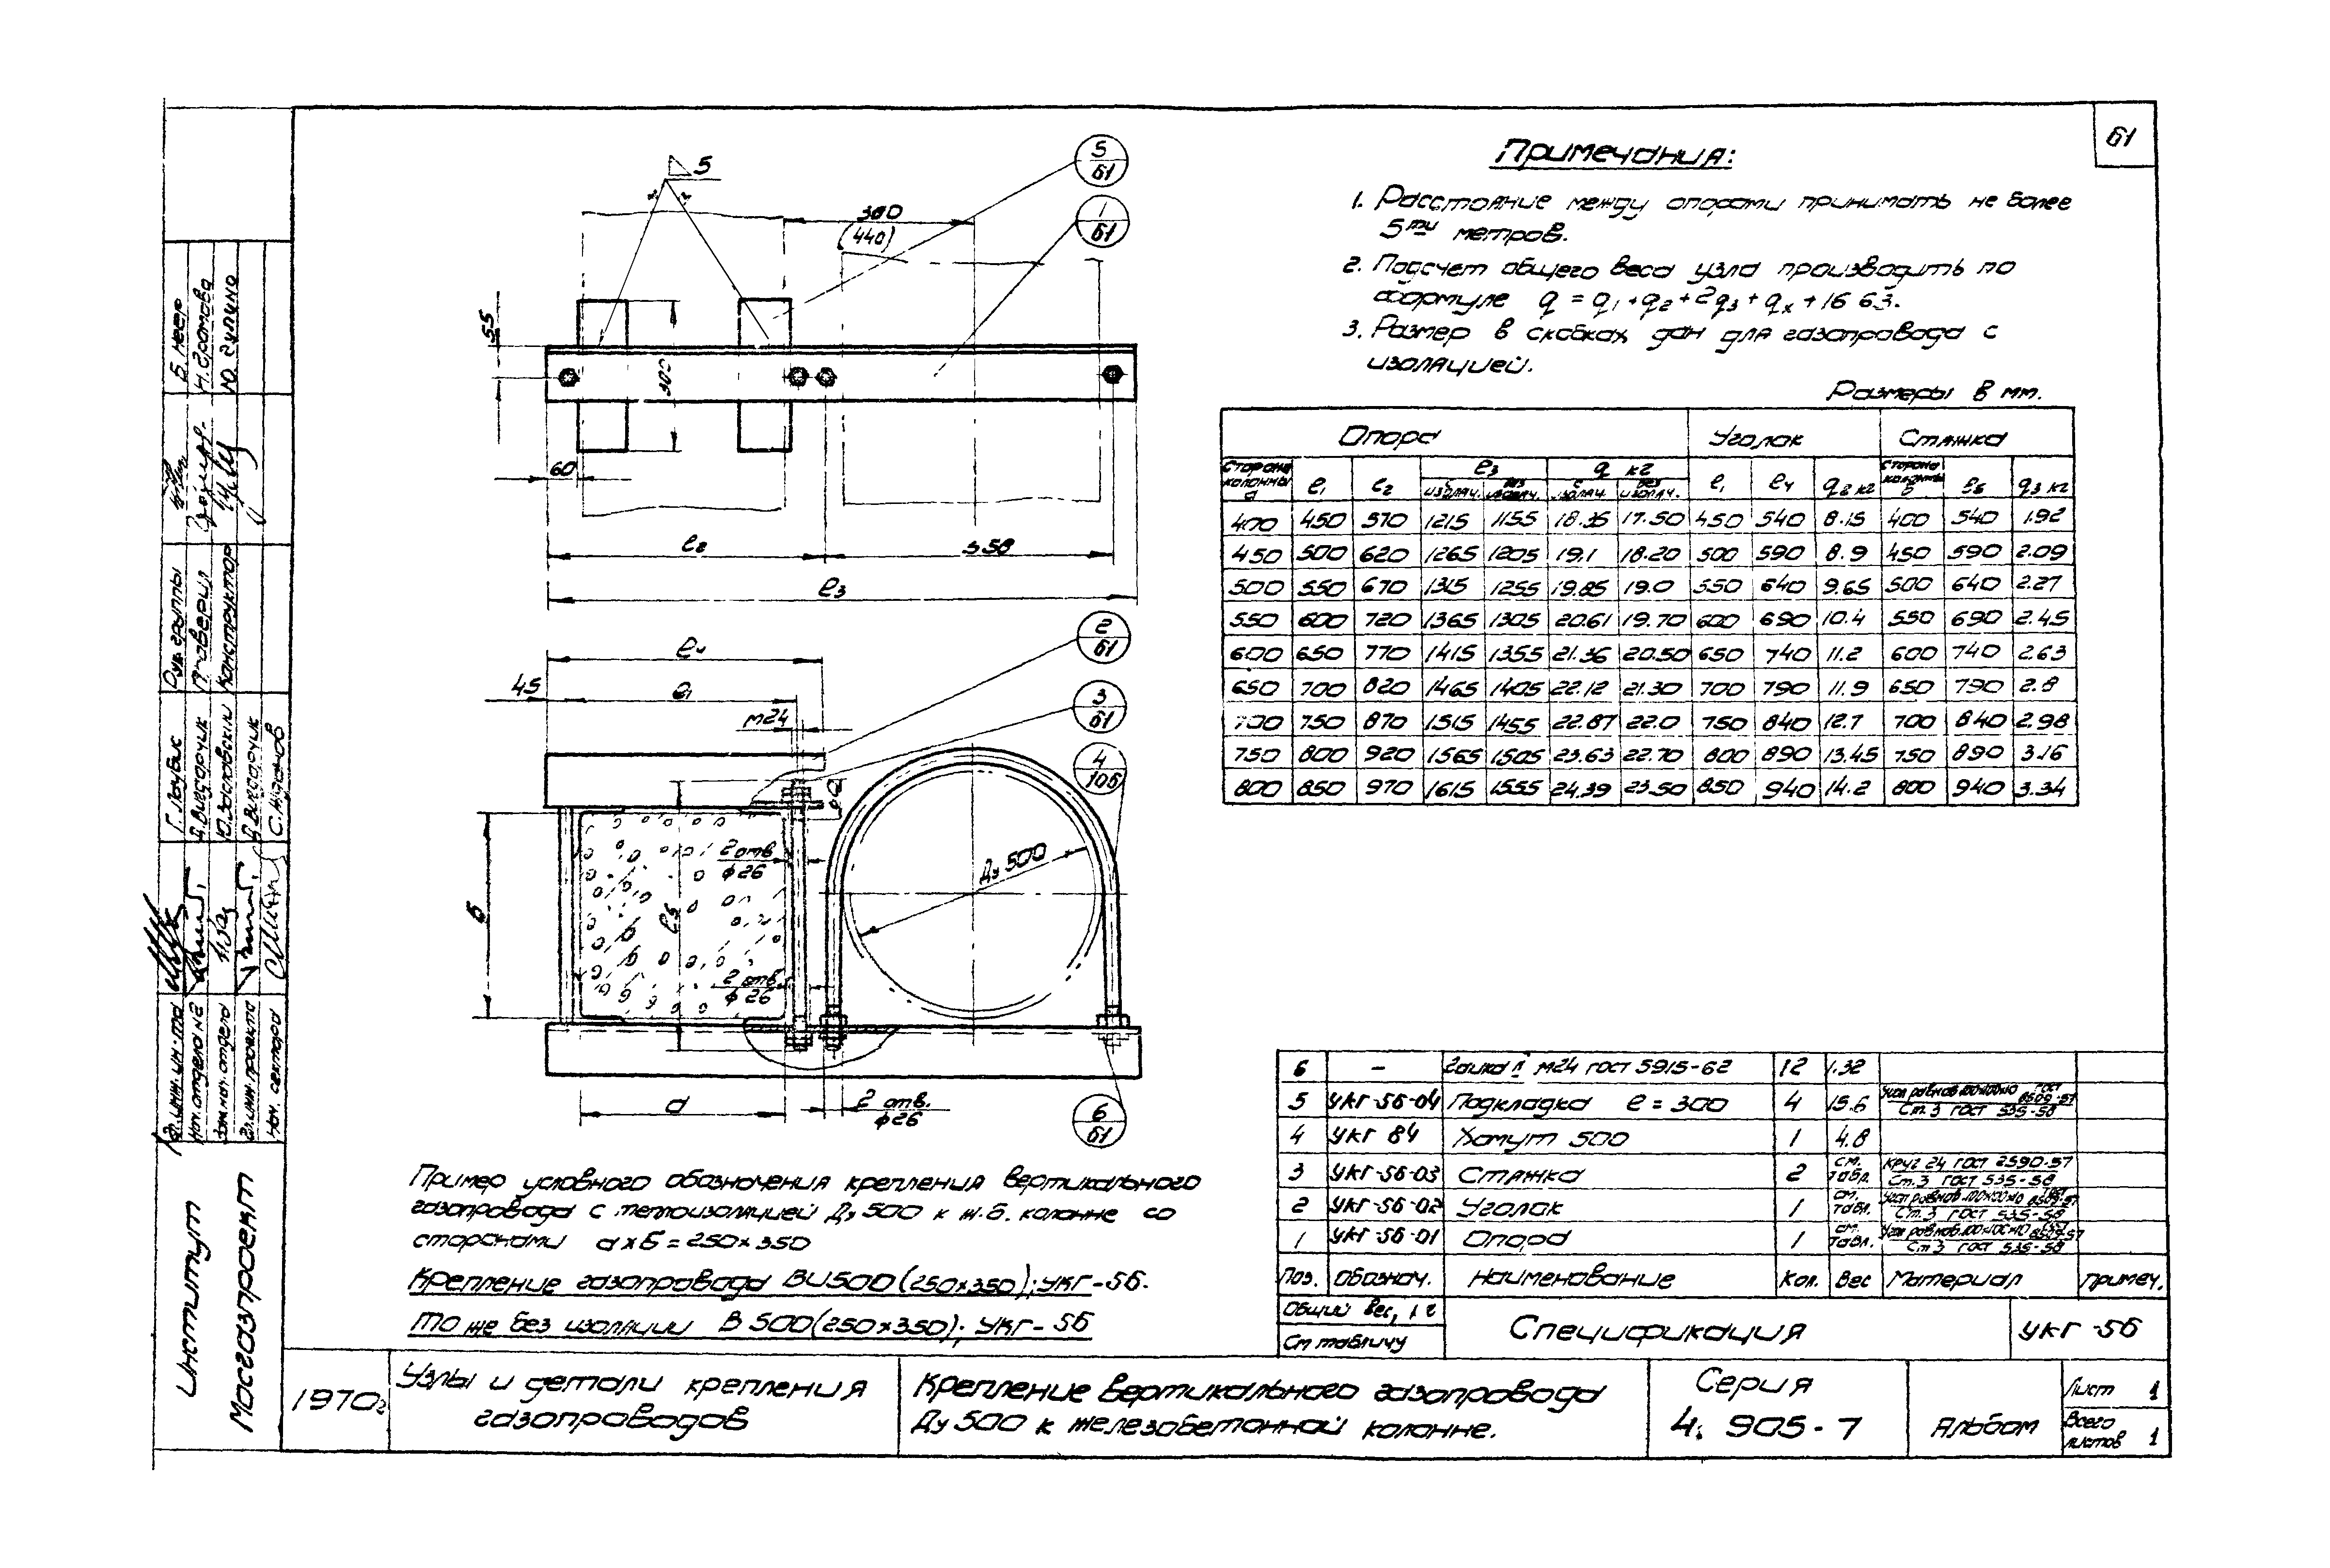 61
Примечания:
1. Расстояние между опорами принимать не более
5ти метров.
2. Подсчет общего веса узла производить по
формуле q = q1 + q2 + 2q3 + qx + 16 63.
3. Размер в скобках дан для газопровода с
изоляцией.
Размеры в мм.
Опора Уголок Стяжка
Сторона колонны а e1 e2 e3 q кг e1 e4 q2 кг Сторона колонны б e5 q3 кг
с изоляц. без изоляц. с изоляц. без изоляц.
400 450 570 1215 1155 18.35 17.50 450 540 8.15 400 540 1.92
450 500 620 1265 1205 19.1 18.20 500 590 8.9 450 590 2.09
500 550 670 1315 1255 19.85 19.0 550 640 9.65 500 640 2.27
550 600 720 1365 1305 20.61 19.70 600 690 10.4 550 690 2.45
600 650 770 1415 1355 21.36 20.50 650 740 11.2 600 740 2.63
650 700 820 1465 1405 22.12 21.30 700 790 11.9 650 790 2.8
700 750 870 1515 1455 22.87 22.0 750 840 12.7 700 840 2.98
750 800 920 1565 1505 23.63 22.70 800 890 13.45 750 890 3.16
800 850 970 1615 1555 24.39 23.50 850 940 14.2 800 940 3.34
5
5
61
1
61
380
(440)
55
300
60
e2
558
e3
2
61
e4
45
e1
3
61
М24
4
106
60
2 отв
ф 26
Ду 500
б
e5
2 отв
ф 26
а
2 отв.
ф26
6
61
Пример условного обозначения крепления вертикального
газопровода с теплоизоляцией Ду 500 к ж.б. колонне со
сторонами а×б = 250×350
Крепление газопровода ВИ500 (250×350); УКГ-56.
То же без изоляции В 500 (250×350); УКГ-56
6 - Гайка II М24 ГОСТ 5915-62 12 1.32
5 УКГ-56-04 Подкладка e = 300 4 15.6 Ст.3 ГОСТ 535-58
4 УКГ 84 Хомут 500 1 4.8
3 УКГ-56-03 Стяжка 2 см. табл. Круг 24 ГОСТ 2590-57 Ст.3 ГОСТ 535-58
2 УКГ-56-02 Уголок 1 см. табл. Ст.3 ГОСТ 535-58
1 УКГ-56-01 Опора 1 см. табл. Ст 3 ГОСТ 535-58
Поз. Обознач. Наименование Кол. Вес Материал Примеч.
Общий вес, кг
См таблицу
Спецификация
УКГ-56
1970г
Узлы и детали крепления
газопроводов
Крепление вертикального газопровода
Ду 500 к железобетонной колонне.
Серия
4. 905-7
Альбом
Лист 1
Всего листов 1
Институт
Мосгазпроект
Гл. инж. ин-та
Нач. отдела №2
Зам. нач. отдела
Гл. инж. проекта
Нач. сектора
Г. Голубис
А. Выездчик
Ю. Заславский
А. Выездчик
С. Жданов
Рук. группы
Проверил
Конструктор
Б. Меер
Н. Громова
Ю. Гулина